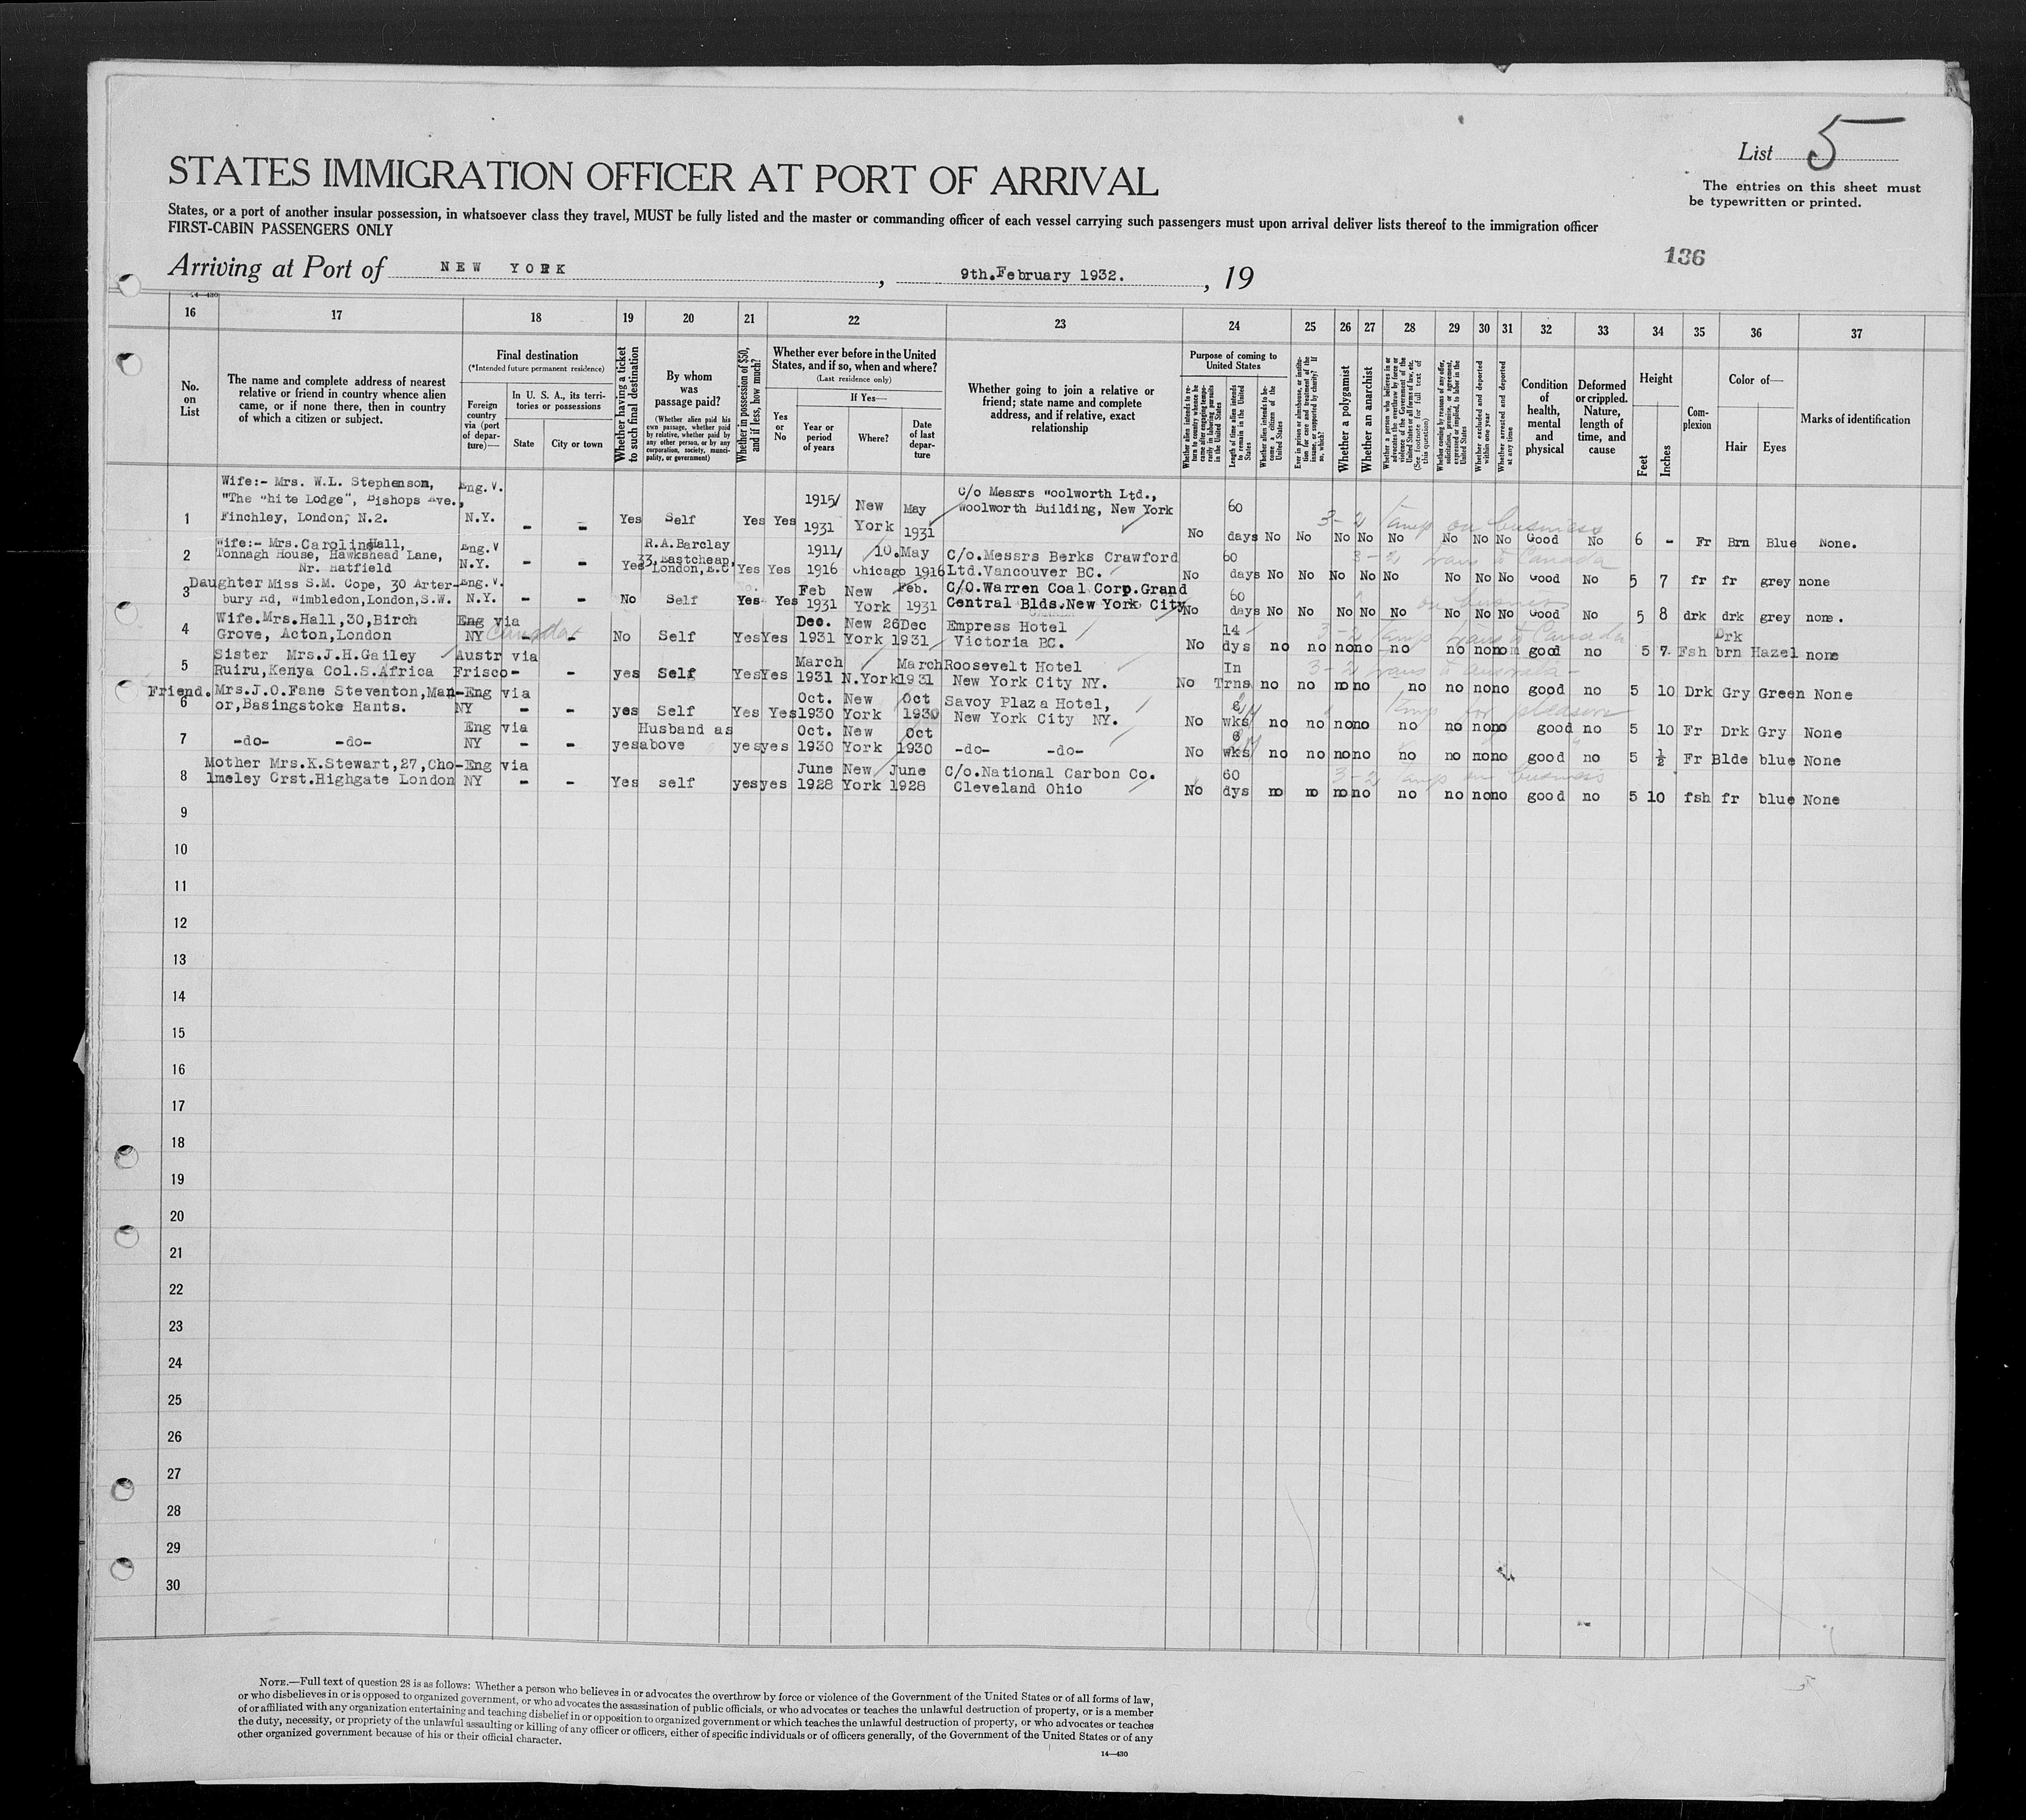 List 5
The entries on this sheet must
be typewritten or printed.
STATES IMMIGRATION OFFICER AT PORT OF ARRIVAL
States, or a port of another insular possession, in whatsoever class they travel, MUST be fully listed and the master or commanding officer of each vessel carrying such passengers must upon arrival deliver lists thereof to the immigration officer
FIRST-CABIN PASSENGERS ONLY
136
Arriving at Port of NEW YORK, 9th.February 1932., 19
14—430
16 17 18 19 20 21 22 23 24 25 26 27 28 29 30 31 32 33 34 35 36 37
No. on List
The name and complete address of nearest relative or friend in country whence alien came, or if none there, then in country of which a citizen or subject.
Final destination
(*Intended future permanent residence)
Foreign country via (port of departure)—
In U. S. A., its territories or possessions
State
City or town
Whether having a ticket to such final destination
By whom was passage paid?
(Whether alien paid his own passage, whether paid by relative, whether paid by any other person, or by any corporation, society, municipality, or government)
Whether in possession of $50, and if less, how much?
Whether ever before in the United States, and if so, when and where?
(Last residence only)
Yes or No
If Yes—
Year or period of years
Where?
Date of last departure
Whether going to join a relative or friend; state name and complete address, and if relative, exact relationship
Purpose of coming to United States
Whether alien intends to return to country whence he came after engaging temporarily in laboring pursuits in the United States
Length of time alien intends to remain in the United States
Whether alien intends to become a citizen of the United States
Ever in prison or almshouse, or institution for care and treatment of the insane, or supported by charity? If so, which?
Whether a polygamist
Whether an anarchist
Whether a person who believes in or advocates the overthrow by force or violence of the Government of the United States or all forms of law, etc. (See footnote for full text of this question)
Whether coming by reasons of any offer, solicitation, promise, or agreement, expressed or implied, to labor in the United States
Whether excluded and deported within one year
Whether arrested and deported at any time
Condition of health, mental and physical
Deformed or crippled. Nature, length of time, and cause
Height
Feet
Inches
Complexion
Color of—
Hair
Eyes
Marks of identification
1 Wife:- Mrs. W.L. Stephenson, "The White Lodge", Bishops Ave., Finchley, London, N.2. Eng.V. N.Y. - - Yes Self Yes Yes 1915/1931 New York May 1931 c/o Messrs Woolworth Ltd., Woolworth Building, New York No 60 days No No No No No No No No Good No 6 - Fr Brn Blue None.
3-2 Temp on business
2 Wife:- Mrs.Caroline Hall, Tonnagh House, Hawkshead Lane, Nr. Hatfield Eng.V N.Y. - - Yes R.A.Barclay 33,Eastcheap, London,E.C Yes Yes 1911/1916 Chicago 10.May 1916 C/o.Messrs Berks Crawford Ltd.Vancouver BC. No 60 days No No No No No No No No Good No 5 7 fr fr grey none
3-2 trans to Canada
3 Daughter Miss S.M. Cope, 30 Arterbury Rd, Wimbledon,London,S.W. Eng.V. N.Y. - - No Self Yes Yes Feb 1931 New York Feb. 1931 C/O.Warren Coal Corp.Grand Central Blds.New York City No 60 days No No No No No No No No Good No 5 8 drk drk grey none.
on business
4 Wife.Mrs.Hall,30,Birch Grove, Acton,London Eng via NY Canada - - No Self Yes Yes Dec. 1931 New York 26Dec 1931 Empress Hotel Victoria BC. No 14 dys no no no no no no no no good no 5 7 Fsh Drk brn Hazel none
3-2 Temp trans to Canada
5 Sister Mrs.J.H.Gailey Ruiru,Kenya Col.S.Africa Austr via Frisco - - yes Self Yes Yes March 1931 N.York March 1931 Roosevelt Hotel New York City NY. No In Trns no no no no no no no no good no 5 10 Drk Gry Green None
3-2 trans to Australia
6 Friend. Mrs.J.O.Fane Steventon,Manor,Basingstoke Hants. Eng via NY - - yes Self Yes Yes Oct. 1930 New York Oct 1930 Savoy Plaza Hotel, New York City NY. No 6 wks no no no no no no no no good no 5 10 Fr Drk Gry None
Temp for pleasure
7 -do- -do- Eng via NY - - yes Husband as above yes yes Oct. 1930 New York Oct 1930 -do- -do- No 6 wks no no no no no no no no good no 5 ½ Fr Blde blue None
8 Mother Mrs.K.Stewart,27,Cholmeley Crst.Highgate London Eng via NY - - Yes self yes yes June 1928 New York June 1928 C/o.National Carbon Co. Cleveland Ohio No 60 dys no no no no no no no no good no 5 10 fsh fr blue None
3-2 Temp on business
9
10
11
12
13
14
15
16
17
18
19
20
21
22
23
24
25
26
27
28
29
30
NOTE.—Full text of question 28 is as follows: Whether a person who believes in or advocates the overthrow by force or violence of the Government of the United States or of all forms of law,
or who disbelieves in or is opposed to organized government, or who advocates the assassination of public officials, or who advocates or teaches the unlawful destruction of property, or is a member
of or affiliated with any organization entertaining and teaching disbelief in or opposition to organized government or which teaches the unlawful destruction of property, or who advocates or teaches
the duty, necessity, or propriety of the unlawful assaulting or killing of any officer or officers, either of specific individuals or of officers generally, of the Government of the United States or of any
other organized government because of his or their official character.
14—430